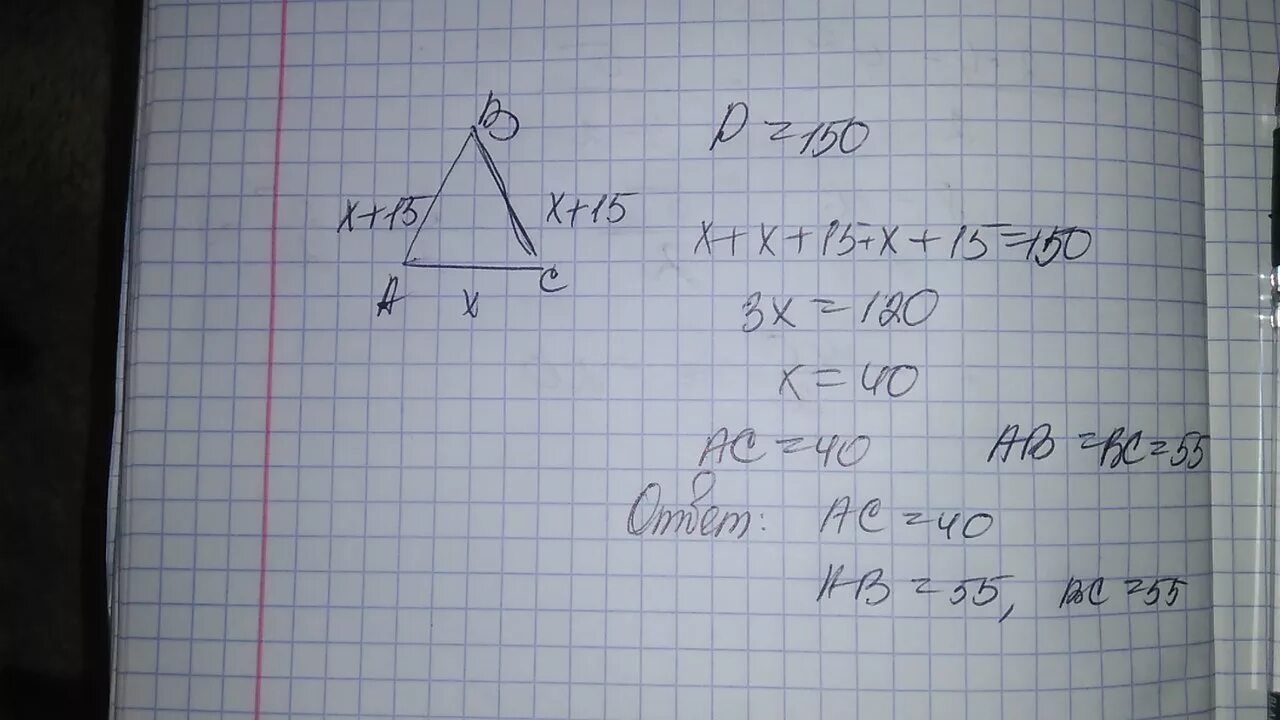 B
x+15
x+15
A
x
C
P = 150
x+x+15+x+15=150
3x = 120
x = 40
AC = 40 AB = BC = 55
Ответ: AC = 40
AB = 55, BC = 55